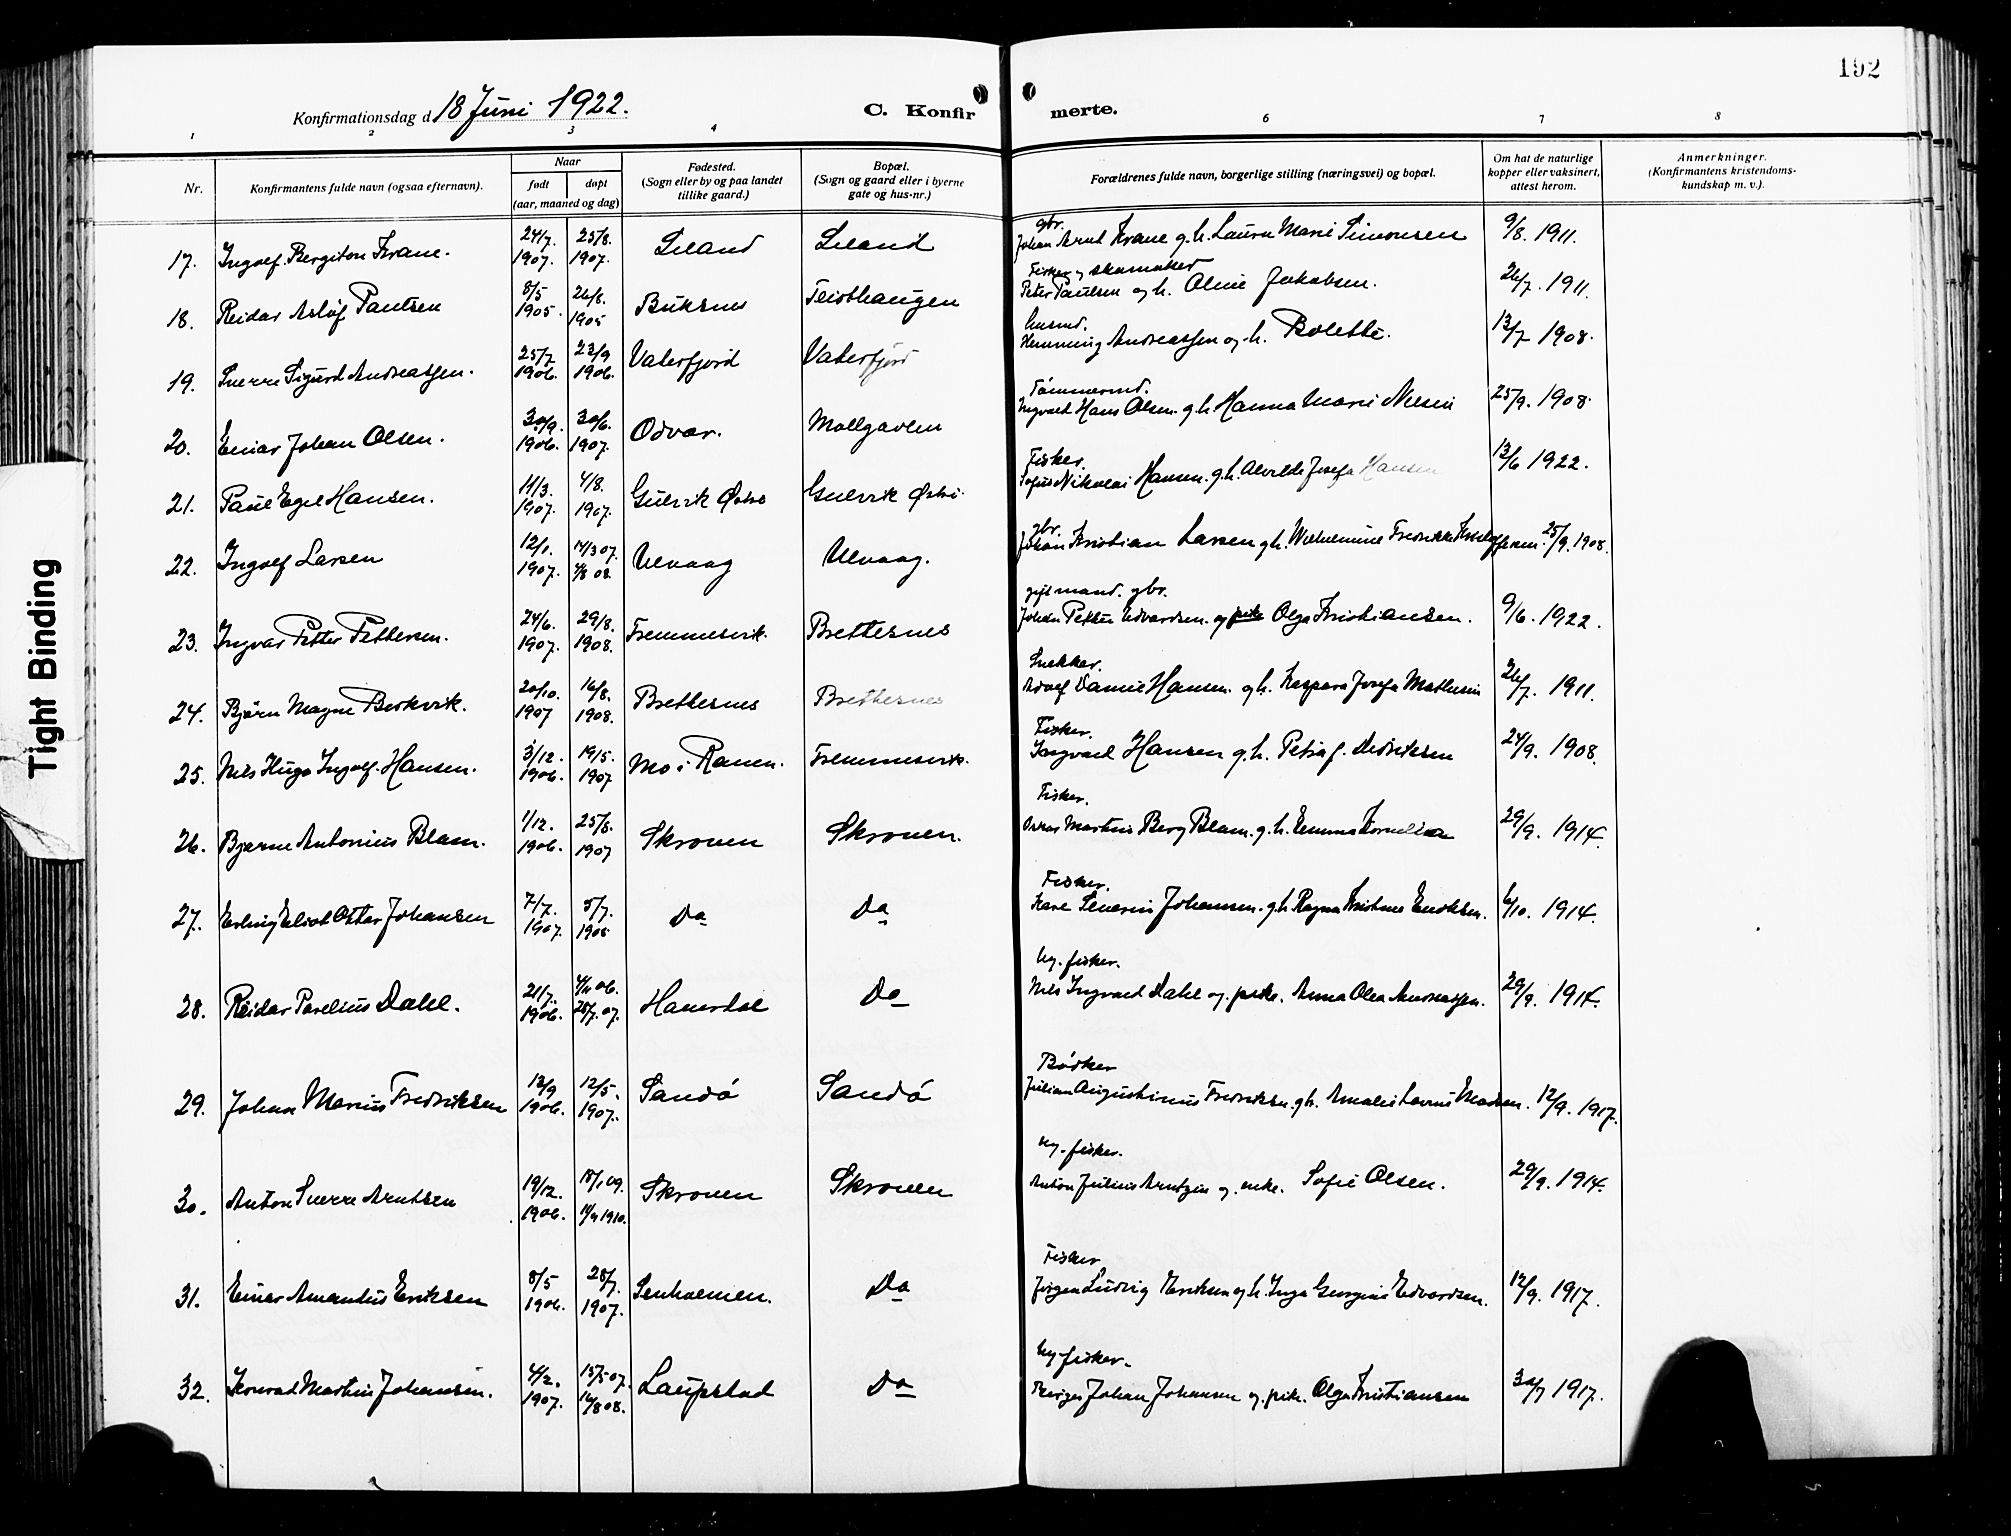 192
Konfirmationsdag d 18 Juni 1922.
C. Konfirmerte.
1 2 3 4 6 7 8
Nr.
Konfirmantens fulde navn (ogsaa efternavn).
Naar
født døpt
(aar, maaned og dag)
Fødested.
(Sogn eller by og paa landet
tillike gaard.)
Bopæl.
(Sogn og gaard eller i byerne
gate og hus-nr.)
Forældrenes fulde navn, borgerlige stilling (næringsvei) og bopæl.
Om hat de naturlige
kopper eller vaksinert,
attest herom.
Anmerkninger.
(Konfirmantens kristendoms-
kundskap m. v.).
gbr.
17. Ingolf Bergiton Krane. 24/7. 1907. 25/8. 1907. Johan Arnt Krane g.h. Laura Marie Simonsen 9/8. 1911.
Fisker og skomaker
18. Reidar Asløf Paulsen 8/5 1905. 26/8. 1905 Buksnes Teisthaugen Peter Paulsen og h. Aline Jakobsen. 26/7. 1911.
husmd.
19. Sverre Sigurd Andreassen. 25/7 1906. 23/9 1906. Vaterfjord Vaterfjord Henning Andreassen og h. Bolette. 13/7 1908.
Tømmermd.
20. Einar Johan Olsen. 30/9. 1906. 30/6. 1907. Odvær. Mollgavlen Ingvald Hans Olsen g.h. Hanna Marie Nilsen 25/9. 1908.
Fisker.
21. Paul Egil Hansen. 11/3. 1907. 4/8. 1907. Gulvik Østre Gulvik Østre Sofus Nikolai Hansen. g.h. Alvilde Josefa Hansen 13/6 1922.
gbr.
22. Ingolf Larsen 12/1. 1907. 14/3 07. 4/8 08. Ulvaag Ulvaag. Johan Kristian Larsen g.h. Wilhelmine Fredrikke Kristoffersen. 25/9. 1908.
gift mand. gbr.
23. Ingvar Petter Pettersen. 24/6. 1907. 29/8. 1908. Fremmesvik. Brettesnes Johan Petter Edvardsen. og pike Olga Kristiansen. 9/6. 1922.
Snekker.
24. Bjørn Magne Berkvik. 20/10. 1907 16/8. 1908. Brettesnes Brettesnes Adolf Daniel Hansen. og h. Kaspara Josefa Mathisen 26/7. 1911.
Fisker.
25. Nils Hugo Ingolf. Hansen. 3/12. 1906. 19/5. 1907 Mo i Ranen. Fremmesvik. Ingvald Hansen g.h. Petra f. Didriksen 24/9. 1908.
Fisker.
26. Bjarne Antonius Blam. 1/12. 1906. 25/8. 1907 Skroven Skroven. Oskar Martin Berg Blam. g.h. Emma Kornelia 29/9. 1914.
Fisker.
27. Erling Eliot Otter Johansen 7/7. 1907. 5/7. 1908 Do Do Kare Severin Johansen. g.h. Ragna Kristine Eriksen. 6/10. 1914.
ug. fisker.
28. Reidar Parelius Dahl. 21/7. 1906. 4/11 06. 28/7. 07. Do Nils Ingvard Dahl og. pike. Anna Olea Andreassen. 29/9. 1914.
Bødker
29. Johan Marius Fredriksen 13/9 1906. 12/5. 1907. Sandø Sandø Julian Augustinius Fredriksen. g.h. Amalie Lovise Madsen. 12/9. 1917.
ug. fisker.
30. Anton Sverre Arntsen 19/12. 1906. 18/1 09. 11/9 1910. Skroven Skroven Anton Julius Arntzen og. enke. Sofie Olsen. 29/9. 1914.
Fisker
31. Einar Amandus Eriksen 8/5 1906. 28/7. 1907. Do Jørgen Ludvig Eriksen og h. Inga Georgine Edvardsen. 12/9. 1917.
ug. fisker.
32. Konrad Martin Johansen. 4/2. 1907. 15/5 07. 16/8 08. Laupstad Do Johan Johansen og. pike. Olga Kristiansen 30/7 1917.
Tight Binding